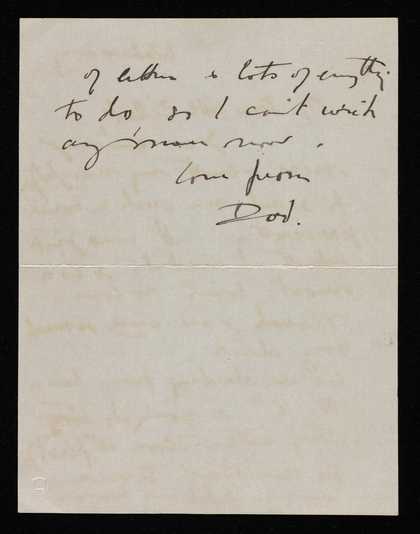 of letters & lots of everything
to do so I can't write
any more now.
Love from
Dod.